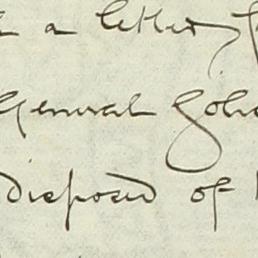 a letter
General
disposed of